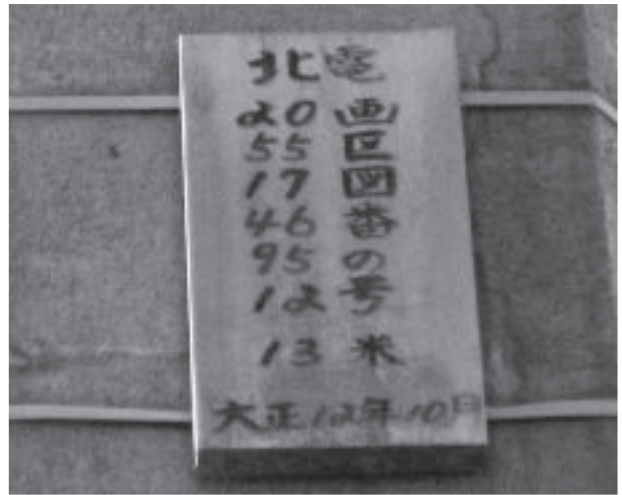 北電
20画
55区
17図
46番
95の
12号
13米
大正12年10月